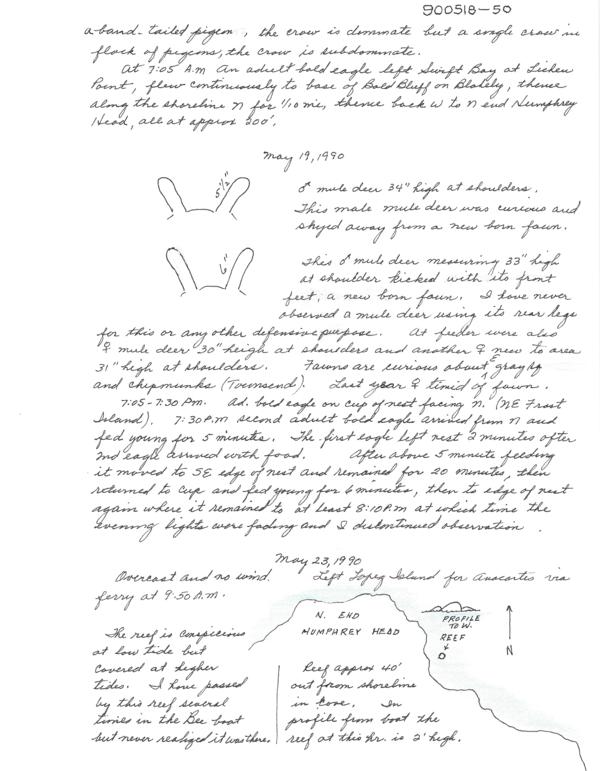 900518-50
a band-tailed pigeon, the crow is dominate but a single crow in
flock of pigeons, the crow is subdominate.
At 7:05 A.M An adult bald eagle left Swift Bay at Lichen
Point, flew continuously to base of Bald Bluff on Blakely, thence
along the shoreline N for 1/10 mi, thence back W to N end Humphrey
Head, all at approx 200'.
May 19, 1990
5 1/2"
♂ mule deer 34" high at shoulders.
This male mule deer was curious and
shyed away from a new born fawn.
6"
This ♂ mule deer measuring 33" high
at shoulder kicked with its front
feet, a new born fawn. I have never
observed a mule deer using its rear legs
for this or any other defensive purpose. At feeder were also
♀ mule deer 30" heigh at shoulders and another ♀ new to area
31" high at shoulders. Fawns are curious about gray sq
and chipmunks (Townsend). Last year ♀ timid of fawn.
7:05-7:30 PM. Ad. bald eagle on cup of nest facing N. (NE Frost
Island). 7:30 P.M. second adult bald eagle arrived from N and
fed young for 5 minutes. The first eagle left nest 2 minutes after
2nd eagle arrived with food. After above 5 minute feeding
it moved to SE edge of nest and remained for 20 minutes, then
returned to cup and fed young for 6 minutes, then to edge of nest
again where it remained to at least 8:10 P.M at which time the
evening lights were fading and I discontinued observation.
May 23, 1990
Overcast and no wind. Left Lopez Island for Anacortes via
ferry at 9:50 A.M.
N. END
HUMPHREY HEAD
PROFILE
TO W.
REEF
N
The reef is conspicious
at low tide but
covered at higher
tides. I have passed
by this reef several
times in the Bee boat
but never realized it was there.
Reef approx 40'
out from shoreline
in cove. In
profile from boat the
reef at this hr. is 2' high.